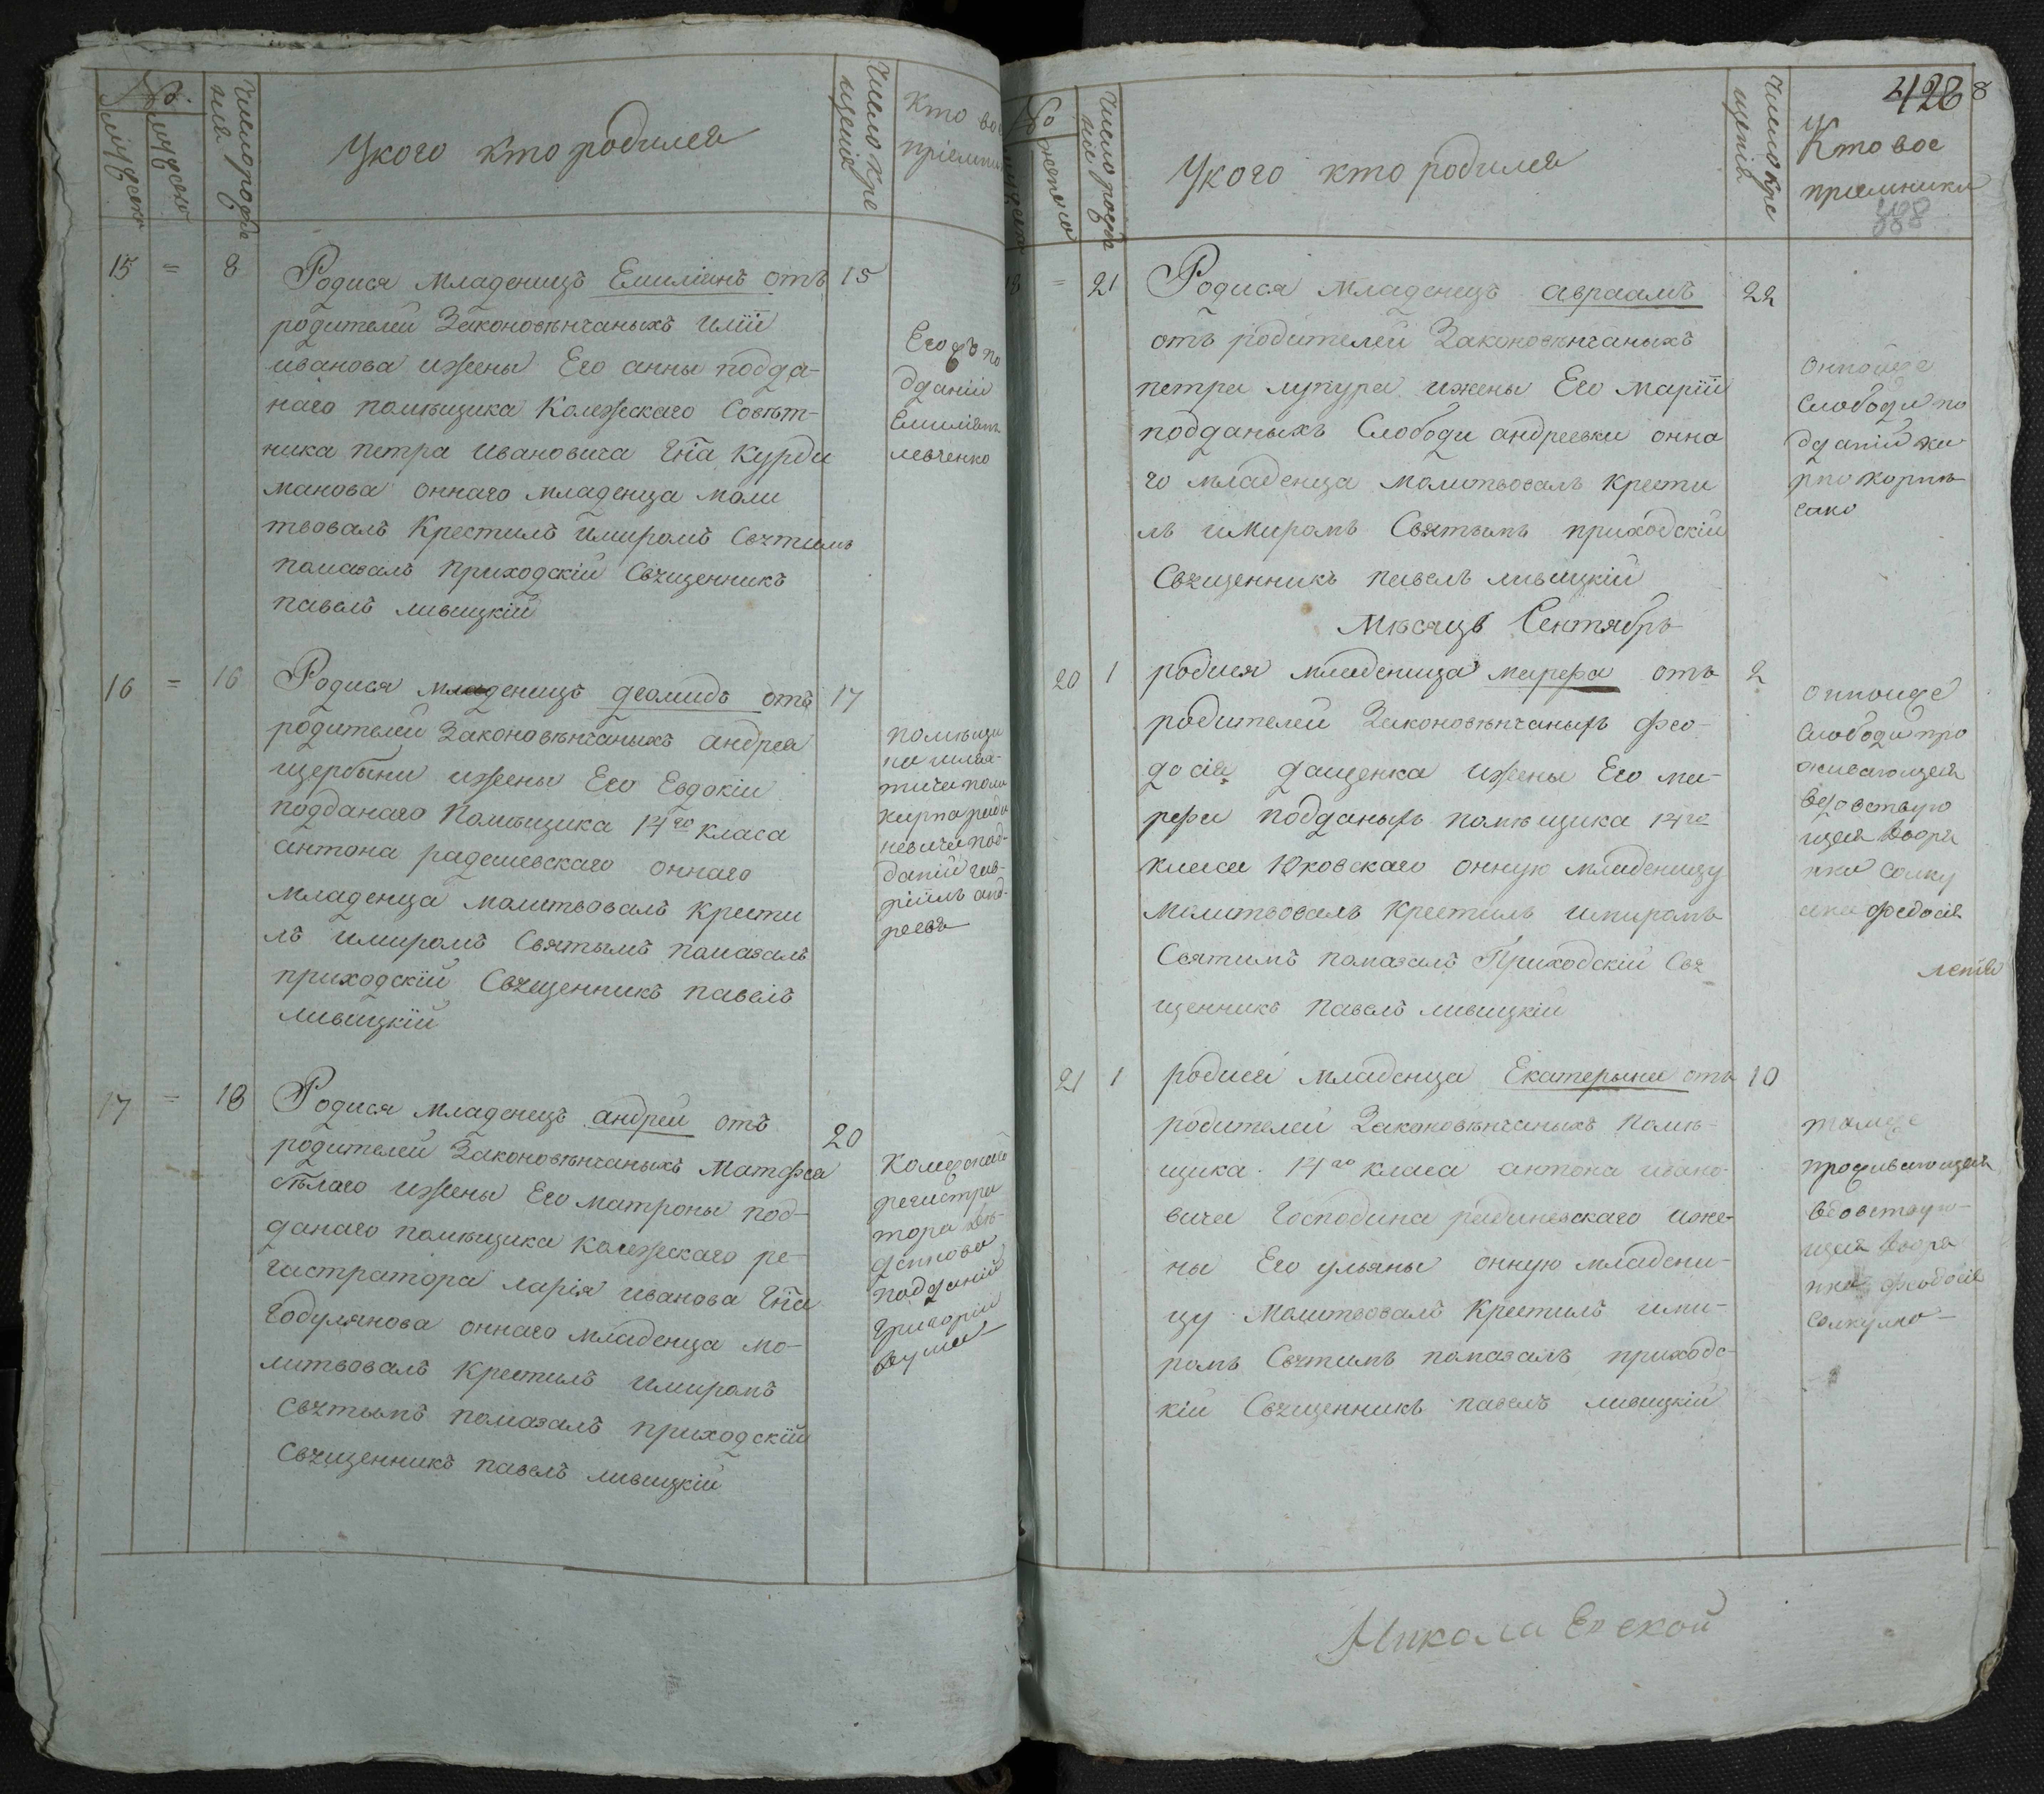 №.
мужеска
женска
Число рожде
нія
У кого кто родился
Число кре
щенія
Кто вос
пріемни
15 = 8
Родися младенецъ Емиліанъ отъ 15
родителей Законовѣнчаныхъ Иліи
иванова ижены Его анны подда-
наго помѣщика Колежскаго Совѣт-
ника петра Ивановича Гна Курди
манова оннаго младенца моли
твовалъ Крестилъ имиромъ Свтимъ
помазалъ Приходскій Свщенникъ
павелъ ливицкій
Его по
дданій
Емиліянъ
левченко
16 = 16
Родися младенецъ деомидъ отъ 17
родителей Законовѣнчаныхъ андрея
щербыни ижены Его Евдокіи
подданаго Помѣщика 14го класа
антона радешевскаго оннаго
младенца молитвовалъ Крести
лъ имиромъ Святымъ помазалъ
приходскій Свщенникъ павелъ
ливицкій
помѣщи
под-
даній гав-
ріилъ анд-
реевъ
17 = 18
Родися младенецъ андрей отъ 20
родителей Законовѣнчаныхъ Матфея
бѣлаго ижены Его матроны под-
данаго помѣщика колежскаго ре-
гистратора ларія иванова Гна
Годулянова оннаго младенца мо-
литвовалъ Крестилъ имиромъ
Свтымъ помазалъ приходскій
Свщенникъ павелъ ливицкій
регистра
тора
подданій
Григорій
428
8
№
женска
Число рожде
нія
У кого кто родился
Число кре
щенія
Кто вос
приемники
388
18 = 21
Родися младенецъ авраамъ 22
отъ родителей Законовѣнчаныхъ
петра лупура ижены Его Маріи
подданыхъ Слободи андреевки онна
го младенца молитвовалъ крести
лъ имиромъ Святымъ приходскій
Свщенникъ павелъ ливицкій
онпойже
Слободи по
дданій ки
рило корнѣ
енко
Мѣсяцъ Сентябрь
20 1
родися младеница марфа отъ 2
родителей Законовѣнчаныхъ Фео-
досія даценка ижены Его ма-
рфи подданыхъ помѣщика 14го
класа Юковскаго онную младеницу
Молитвовалъ крестилъ имиромъ
Святимъ помазалъ Приходскій Свя
щенникъ павелъ ливицкій
онпойже
Слободи про
живающая
вдовствую
щая двора
нка
Федосія
21 1
родися младенца Екатерына отъ 10
родителей Законовѣнчаныхъ Помѣ-
щика 14го класа антона ивано-
вича Господина радишевскаго ижe-
ны Его ульяны онную младени-
цу Молитвовалъ Крестилъ ими-
ромъ Свтимъ помазалъ приходс-
кій Свщенникъ павелъ ливицкій
тамже
проживающая
вдовствую-
щая двора
нка Феодосія
Николаевской